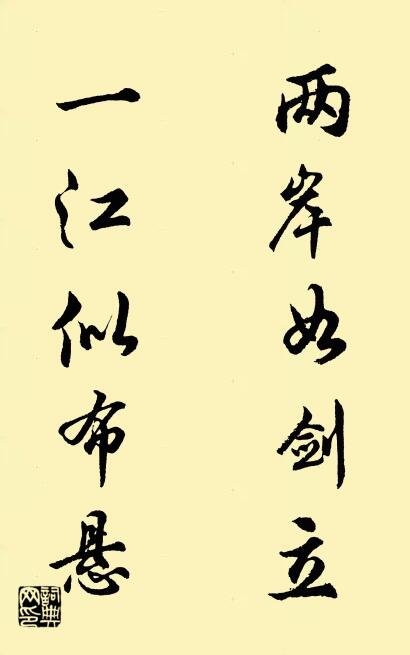 两岸如剑立
一江似布悬
詞典网印